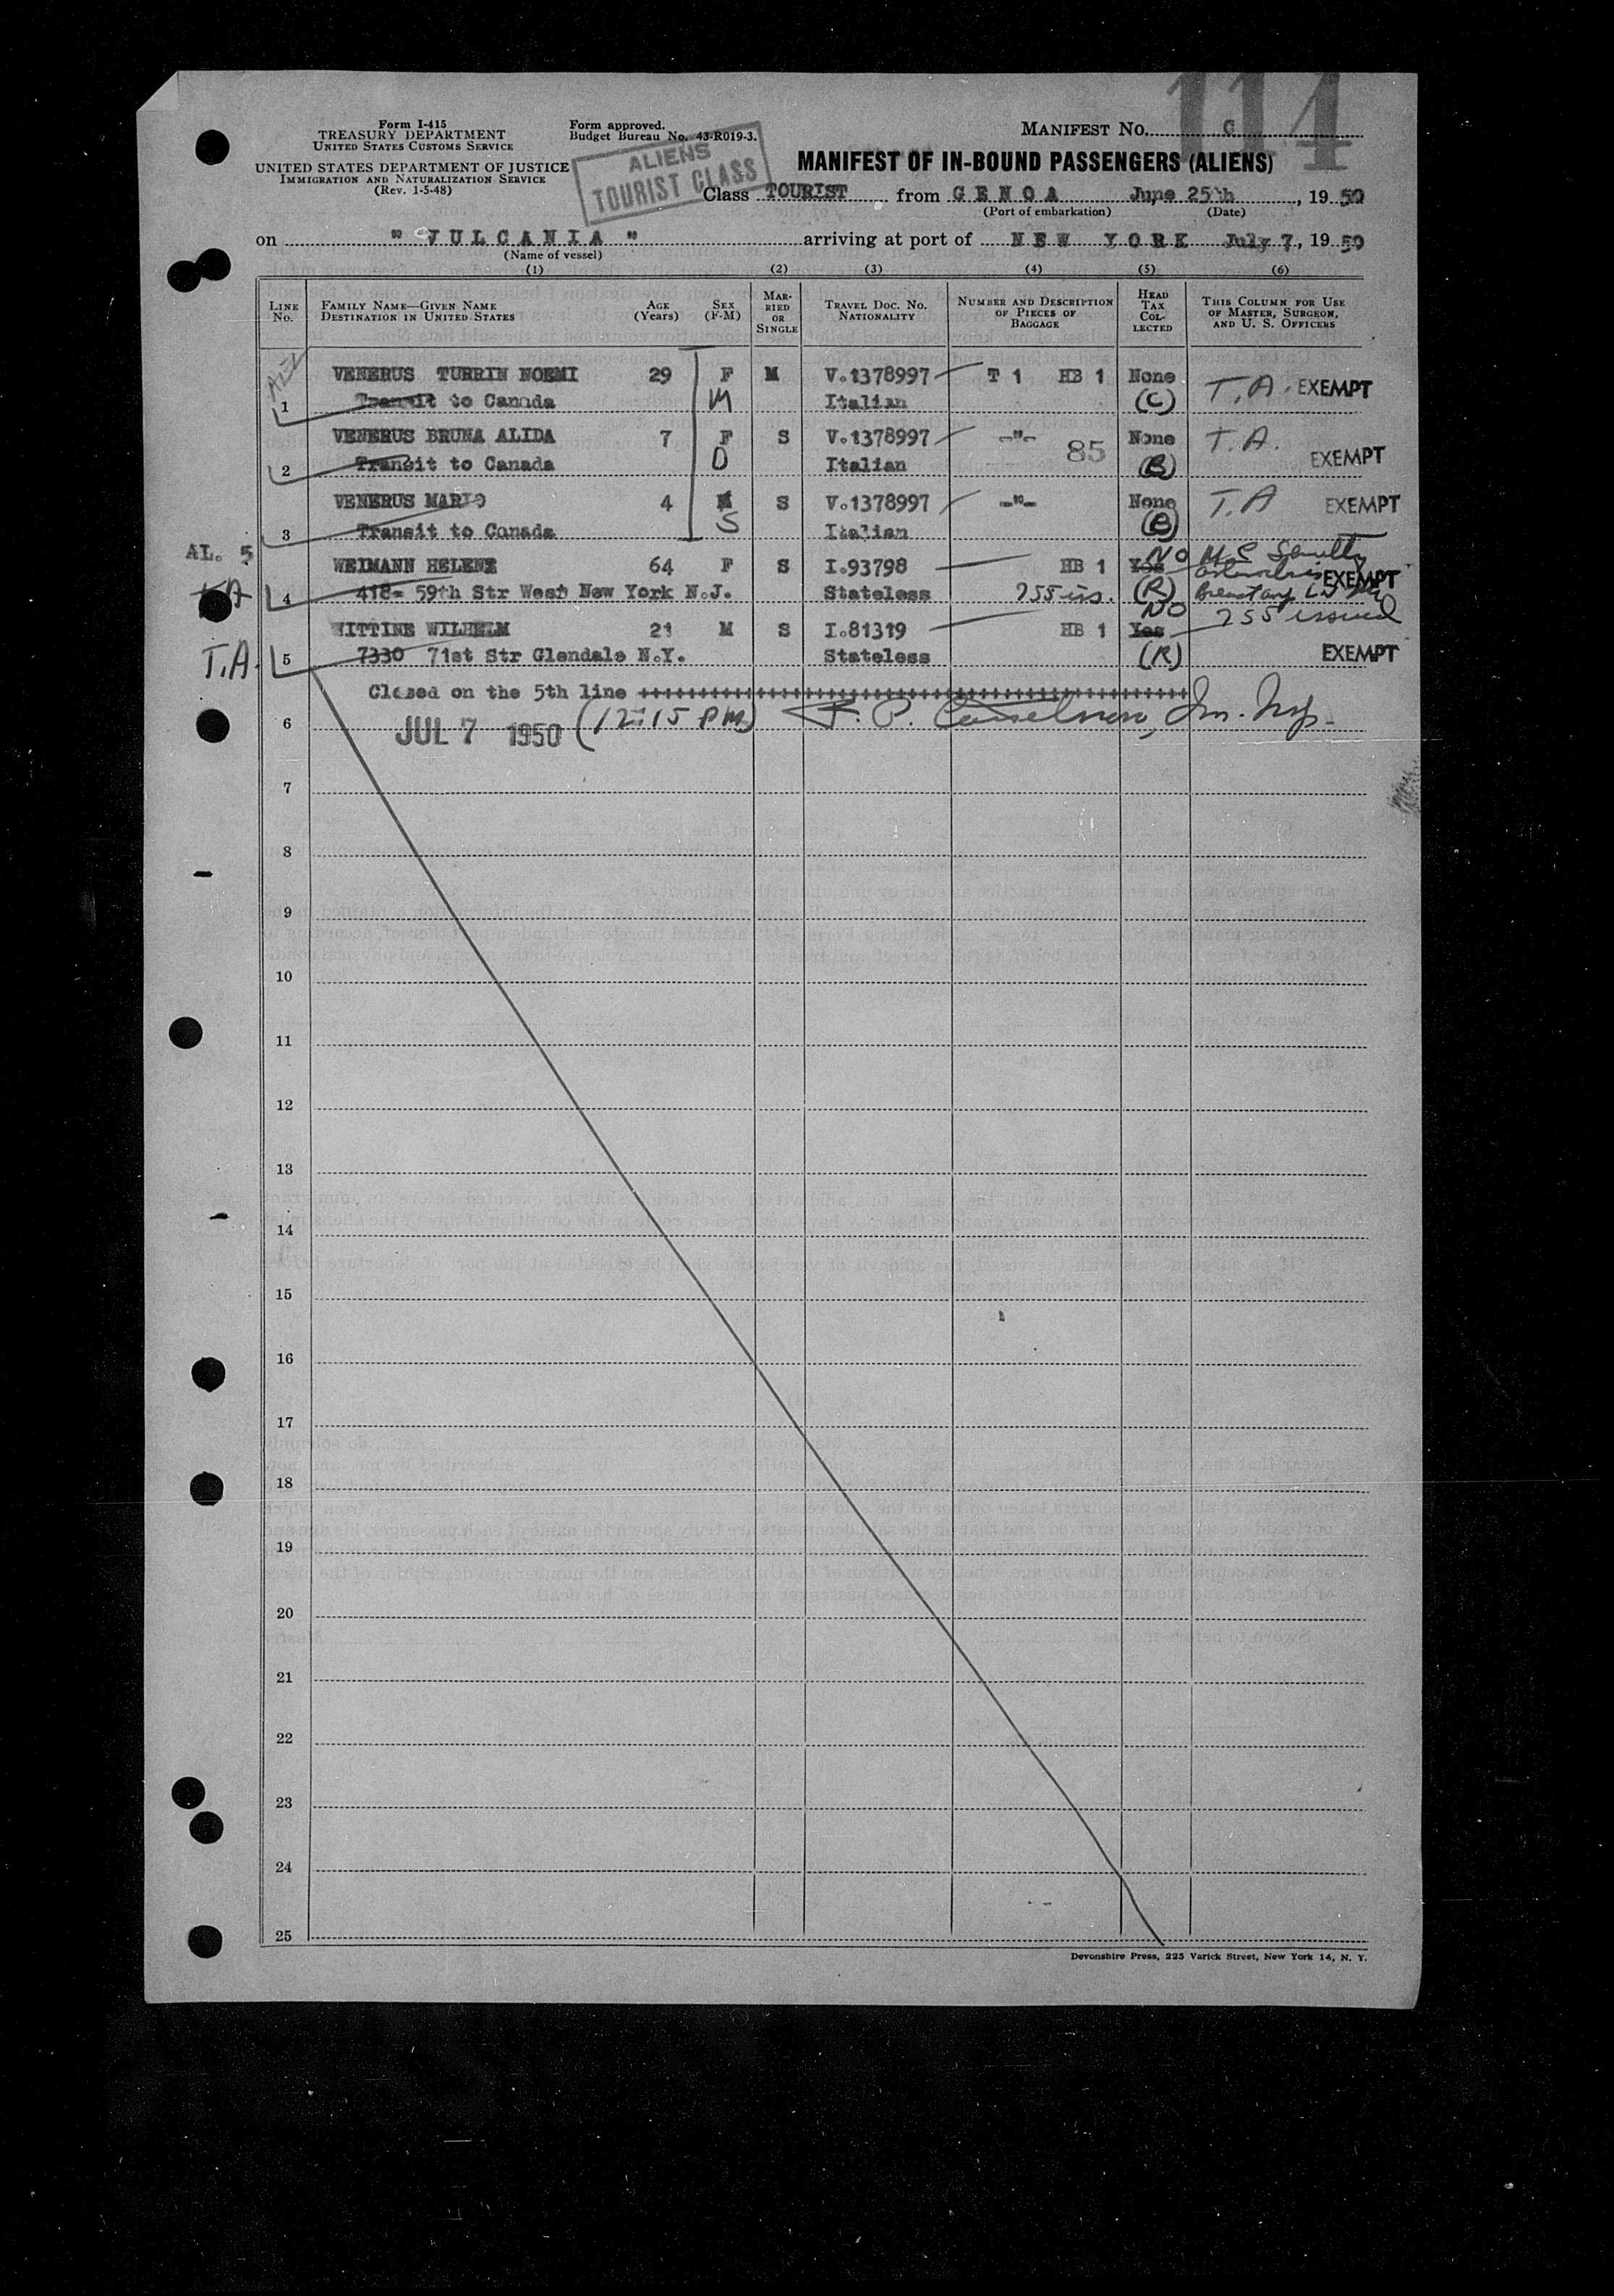 114
Form I-415
TREASURY DEPARTMENT
UNITED STATES CUSTOMS SERVICE
UNITED STATES DEPARTMENT OF JUSTICE
IMMIGRATION AND NATURALIZATION SERVICE
(Rev. 1-5-48)
Form approved.
Budget Bureau No. 43-R019-3.
ALIENS
TOURIST CLASS
MANIFEST NO. G
MANIFEST OF IN-BOUND PASSENGERS (ALIENS)
Class TOURIST from GENOA June 25th, 19 50
(Port of embarkation) (Date)
on "VULCANIA" arriving at port of NEW YORK July 7, 19 50
(Name of vessel)
(1) (2) (3) (4) (5) (6)
LINE No. FAMILY NAME—GIVEN NAME DESTINATION IN UNITED STATES AGE (Years) SEX (F-M) MARRIED OR SINGLE TRAVEL DOC. NO. NATIONALITY NUMBER AND DESCRIPTION OF PIECES OF BAGGAGE HEAD TAX COLLECTED THIS COLUMN FOR USE OF MASTER, SURGEON, AND U. S. OFFICERS
VENERUS TURRIN NOEMI 29 F M V.1378997 T 1 HB 1 None T.A. EXEMPT
1 Transit to Canada M Italian (C)
VENERUS BRUNA ALIDA 7 F S V.1378997 -"- 85 None T.A.
2 Transit to Canada D Italian (B) EXEMPT
VENERUS MARIO 4 M S V.1378997 -"- None T.A EXEMPT
3 Transit to Canada S Italian (B)
AL. 5
WEIMANN HELENE 64 F S I.93798 HB 1 Yes NO
TA 4 418- 59th Str West New York N.J. Stateless 255 iss. (R) EXEMPT
WITTINE WILHELM 21 M S I.81319 HB 1 Yes NO 255 issued
T.A. 5 7330 71st Str Glendale N.Y. Stateless (R) EXEMPT
Closed on the 5th line ++++++++++++++++++++++++++++++++++++++++
6 JUL 7 1950 (12:15 PM)
7
8
9
10
11
12
13
14
15
16
17
18
19
20
21
22
23
24
25
Devonshire Press, 225 Varick Street, New York 14, N. Y.